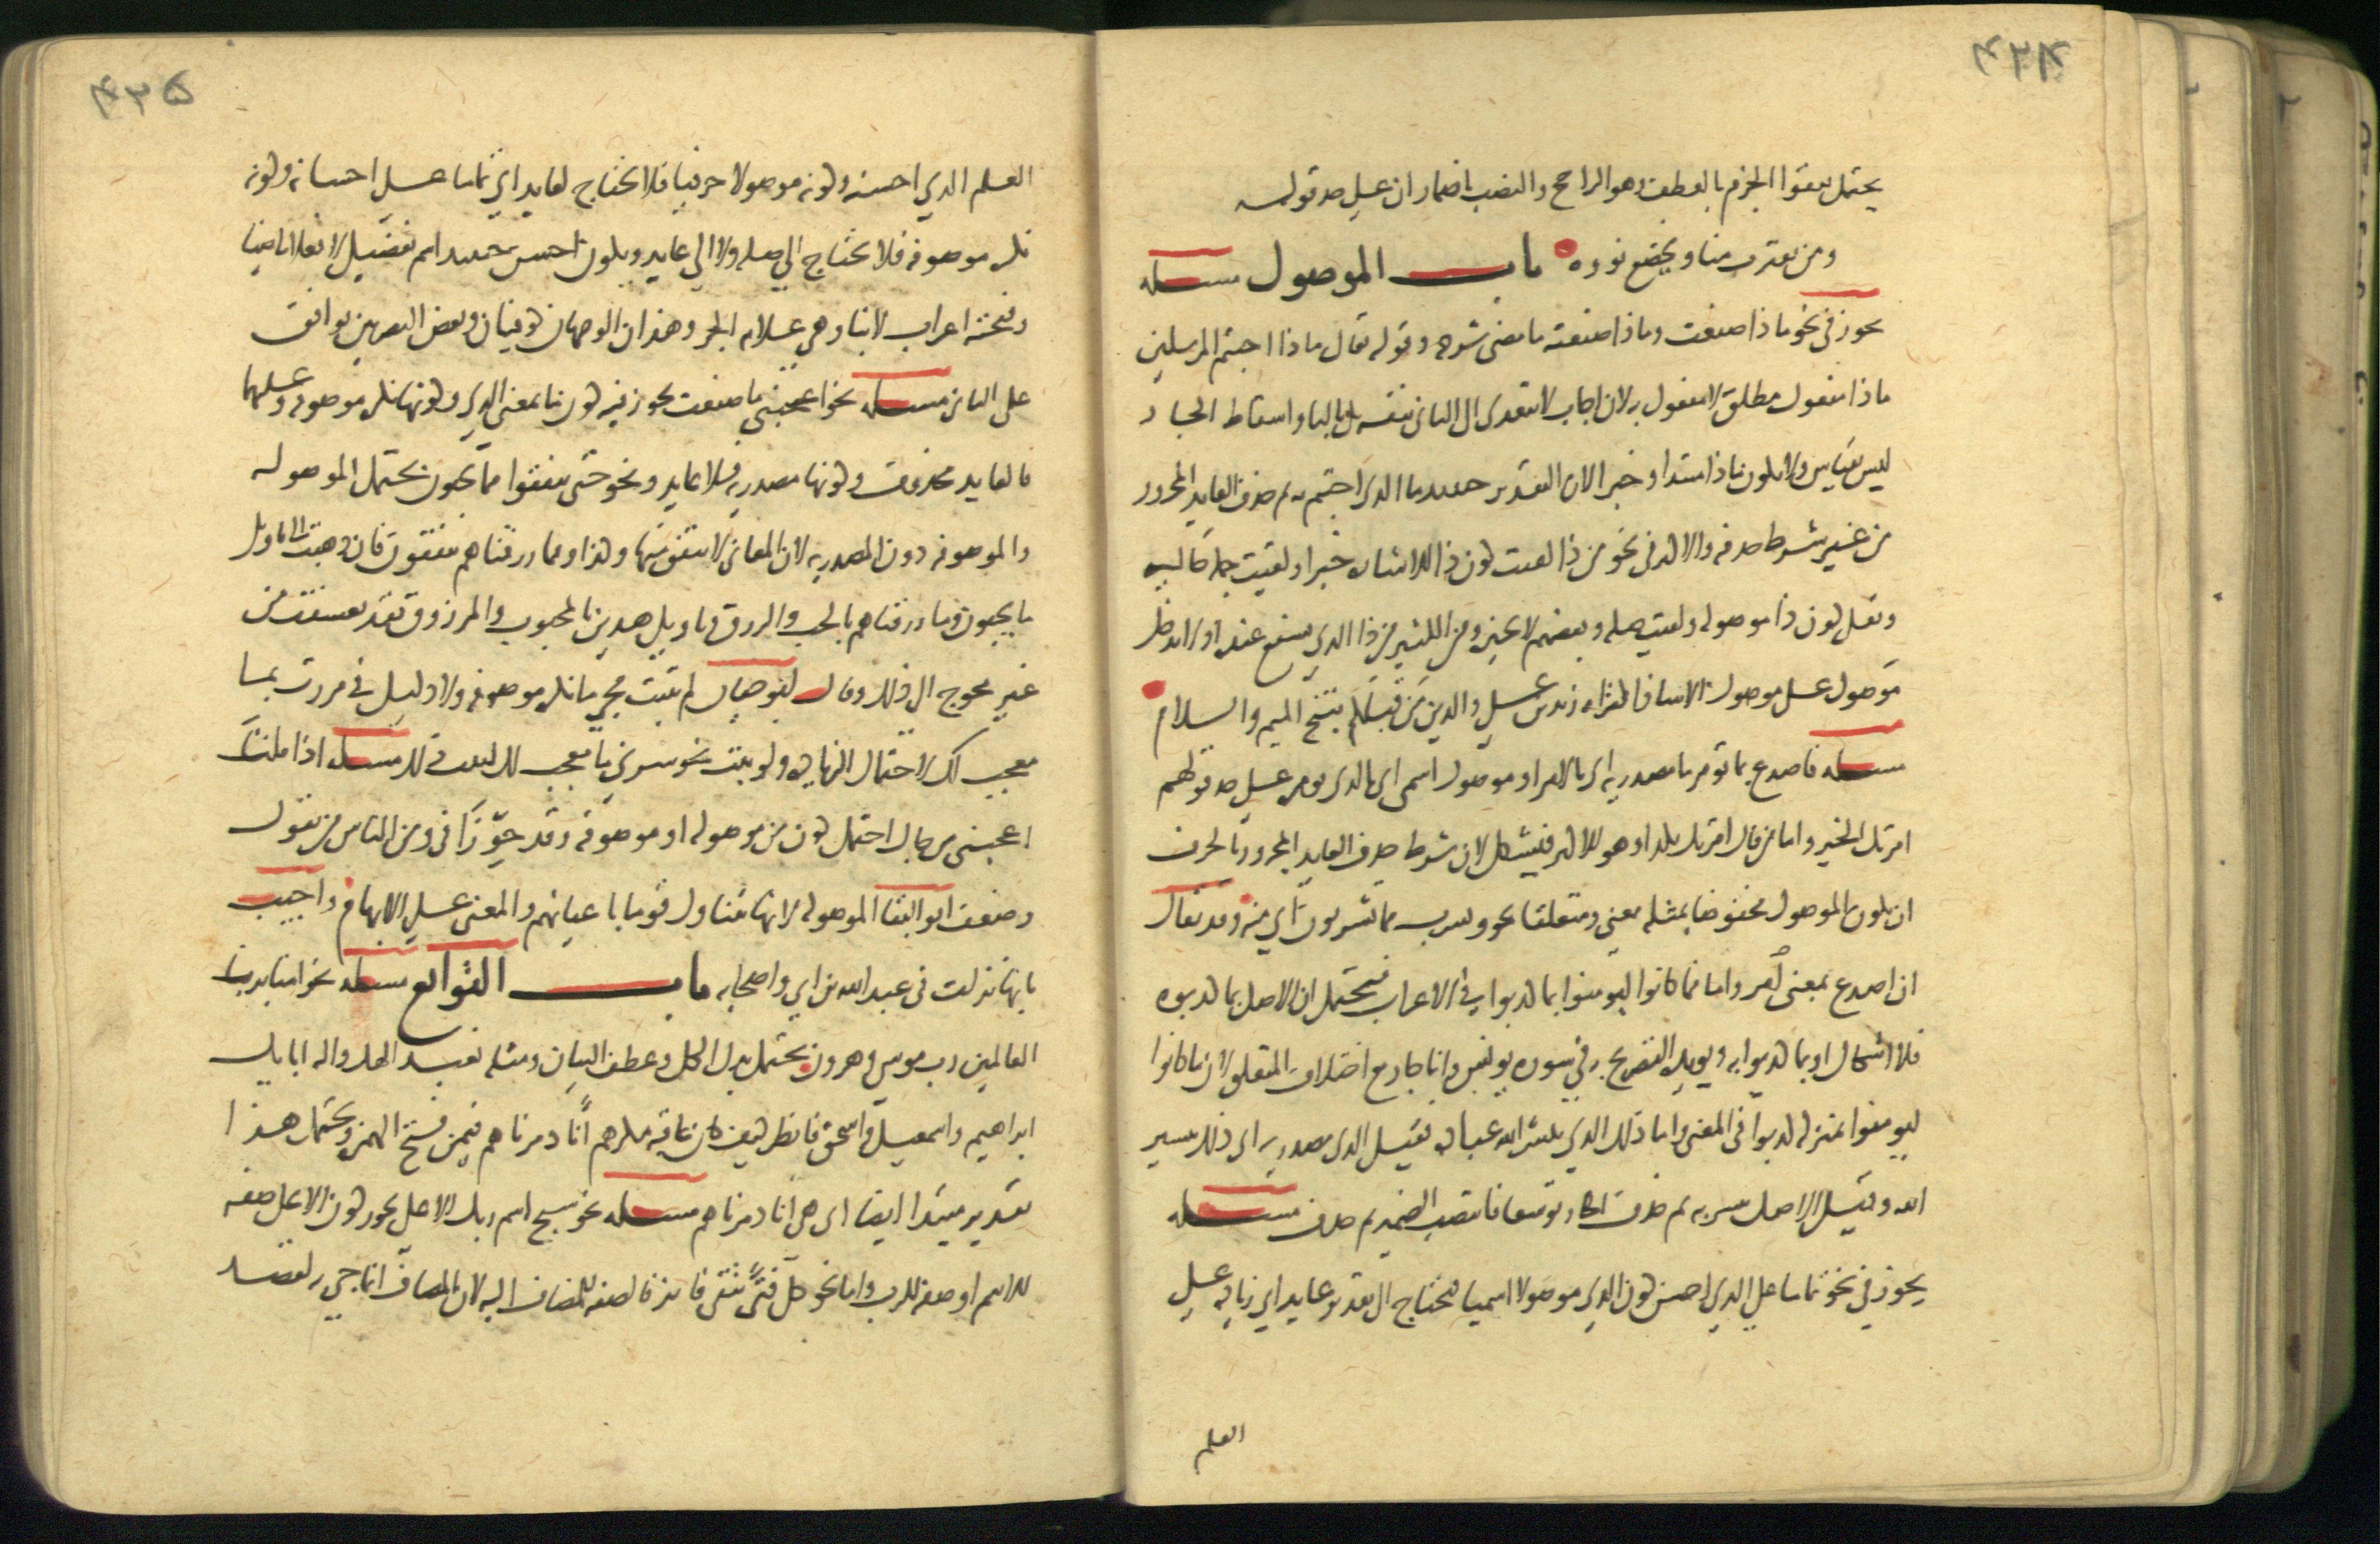 ٤٣٤
يحتمل يعفوا الجزم بالعطف وهو الراجح والنصب باضمار ان على حد قوله
ومن يقترب منا ويخضع نووه باب الموصول مسئله
يجوز في نحو ماذا صنعت وماذا صنعته ما مضى شرحه وقوله تعالى ماذا اجبتم المرسلين
ماذا مفعول مطلق لا مفعول به لان اجاب لا يتعدى الى الثانى بنفسه بل بالبا واسقاط الجار
ليس بقياس ولا يكون ماذا مبتدا وخبرا لان التقدير حينيد ما الذى اجبتم به ثم حذف العايد المجرور
من غير شرط حذفه والاكثر فى نحو من ذا لقيت كون ذا للاشاره خبرا ولقيت جمله حاليه
ويقل كون ذا موصوله ولقيت صله وبعضهم لا يجيزه ومن الكثير من ذا الذى يشفع عنده اذ لا يدخل
موصول على موصول الا شاذا كقراه زيد بن على والذين من قبلكم بفتح الميم والسلام
مسئله فاصدع بما تومر ما مصدريه اى بالامر او موصول اسمى اى بالذى تومر على حد قولهم
امرتك الخير واما من قال امرتك بكذا وهو الاكثر فيشكل لان شرط حذف العايد المجرور بالحرف
ان يكون الموصول مخفوضا بمثله معنى ومتعلقا نحو ويشرب مما تشربون اى منه وقد يقال
ان اصدع بمعنى اُمر واما فما كانوا ليومنوا بما كذبوا في الاعراف فيحتمل ان الاصل بما كذبوه
فلا اشكال او بما كذبوا به ويويده التصريح به في سوره يونس وانما جاز مع اختلاف المتعلق لان ما كانوا
ليومنوا بمنزله كذبوا في المعنى واما ذلك الذي يبشر الله عباده فقيل الذى مصدريه اى ذلك تبشير
الله وقيل الاصل يبشر به ثم حذف الجار توسعا فانتصب الضمير ثم حذف مسئله
يجوز في نحو تماما على الذي احسن كون الذي موصولا اسميا فيحتاج الى تقدير عايد اي زياده على
العلم
٤٣٥
العلم الذي احسنه وكونه موصولا حرفيا فلا يحتاج لعايد اي تماما على احسانه وكونه
نكره موصوفه فلا يحتاج الى صله ولا الى عايد ويكون احسن حينيد اسم تفضيل لا فعلا ماضيا
وفتحته اعراب لا بنا وهي علامه الجر وهذان الوجهان كوفيان وبعض البصريين يوافق
على الثانى مسئله نحو اعجبنى ما صنعت يجوز فيه كون ما بمعنى الذي وكونها نكره موصوفه وعليهما
فالعايد محذوف وكونها مصدريه فلا عايد ونحو حتى تنفقوا مما تحبون يحتمل الموصوله
والموصوفه دون المصدريه لان المعانى لا ينفق منها وكذا ومما رزقناهم ينفقون فان ذهبت الى تاويل
ما تحبون وما رزقناهم بالحب والرزق وتاويل هذين بالمحبوب والمرزوق فقد تعسفت من
غير محوج الى ذلك وقال ابو حيان لم يثبت مجي ما نكره موصوفه ولا دليل في مررت بما
معجب لك لاحتمال الزياده ولو ثبت نحو سرني ما معجب لك لثبت ذلك مسئله اذا قلت
اعجبنى من جاك احتمل كون من موصوله او موصوفه وقد جوّزا في ومن الناس من يقول
وضعف ابو البقا الموصوله لانها تتناول قوما باعيانهم والمعنى على الابهام واجيب
بانها نزلت فى عبد الله بن ابي واصحابه باب التوابع مسئله نحو امنا برب
العالمين رب موسى وهرون يحتمل بدل الكل وعطف البيان ومثله نعبد الهك واله ابايك
ابراهيم واسمعيل واسحق فانظر كيف كان عاقبه مكرهم انّا دمرناهم فيمن فتح الهمزه ويحتمل هذا
تقدير مبتدا ايضا اى هى انا دمرناهم مسئله نحو سبح اسم ربك الاعلى يجوز كون الاعلى صفه
للاسم او صفه للرب واما نحو كل فتىً يتقى فايز فالصفه للمضاف اليه لان المضاف انما جي به لقصد